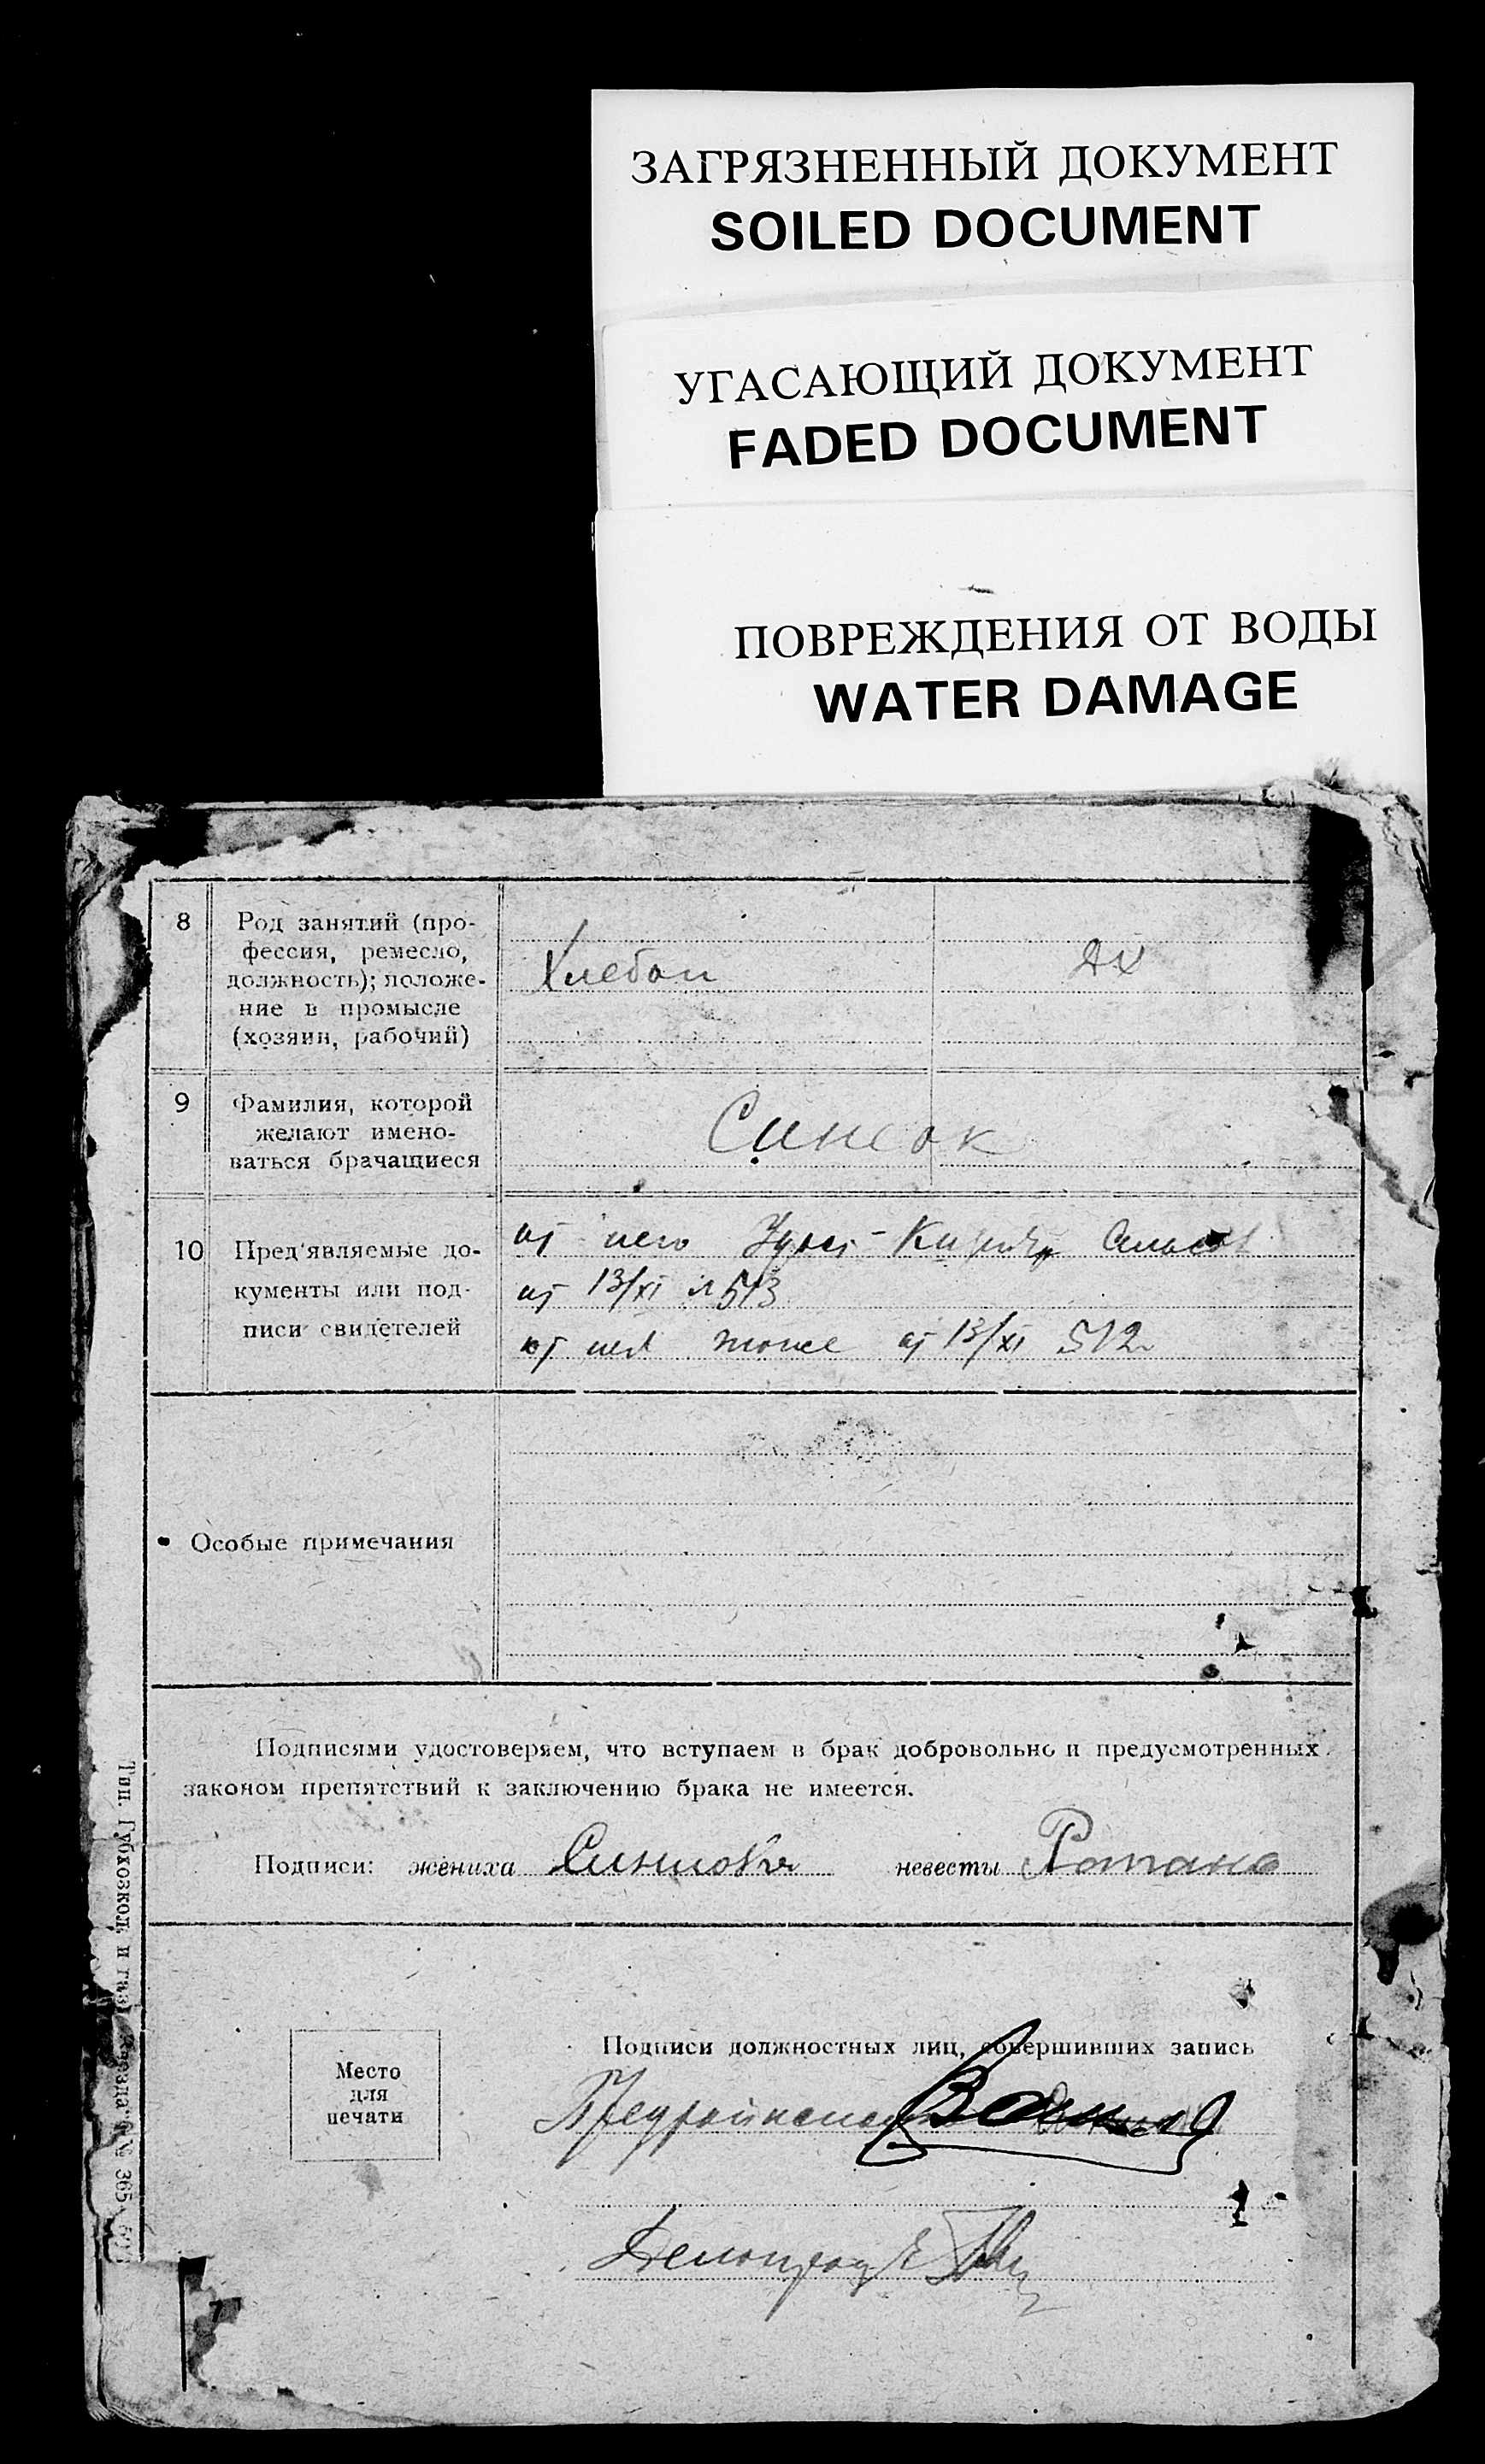 ЗАГРЯЗНЕННЫЙ ДОКУМЕНТ
SOILED DOCUMENT
УГАСАЮЩИЙ ДОКУМЕНТ
FADED DOCUMENT
ПОВРЕЖДЕНИЯ ОТ ВОДЫ
WATER DAMAGE
8
Род занятий (про-
фессия, ремесло,
должность); положе-
ние в промысле
(хозяин, рабочий)
Хлебоп
дх
9
Фамилия, которой
желают имено-
ваться брачащиеся
10
Пред'являемые до-
кументы или под-
писи свидетелей
от него
от 13/XI № 513
от нея тоже от 13/XI 512
Особые примечания
Подписями удостоверяем, что вступаем в брак добровольно и предусмотренных
законом препятствий к заключению брака не имеется.
Подписи: жениха невесты
Место
для
печати
Подписи должностных лиц, совершивших запись
Тип. Губхозкол. и газ. 365
7